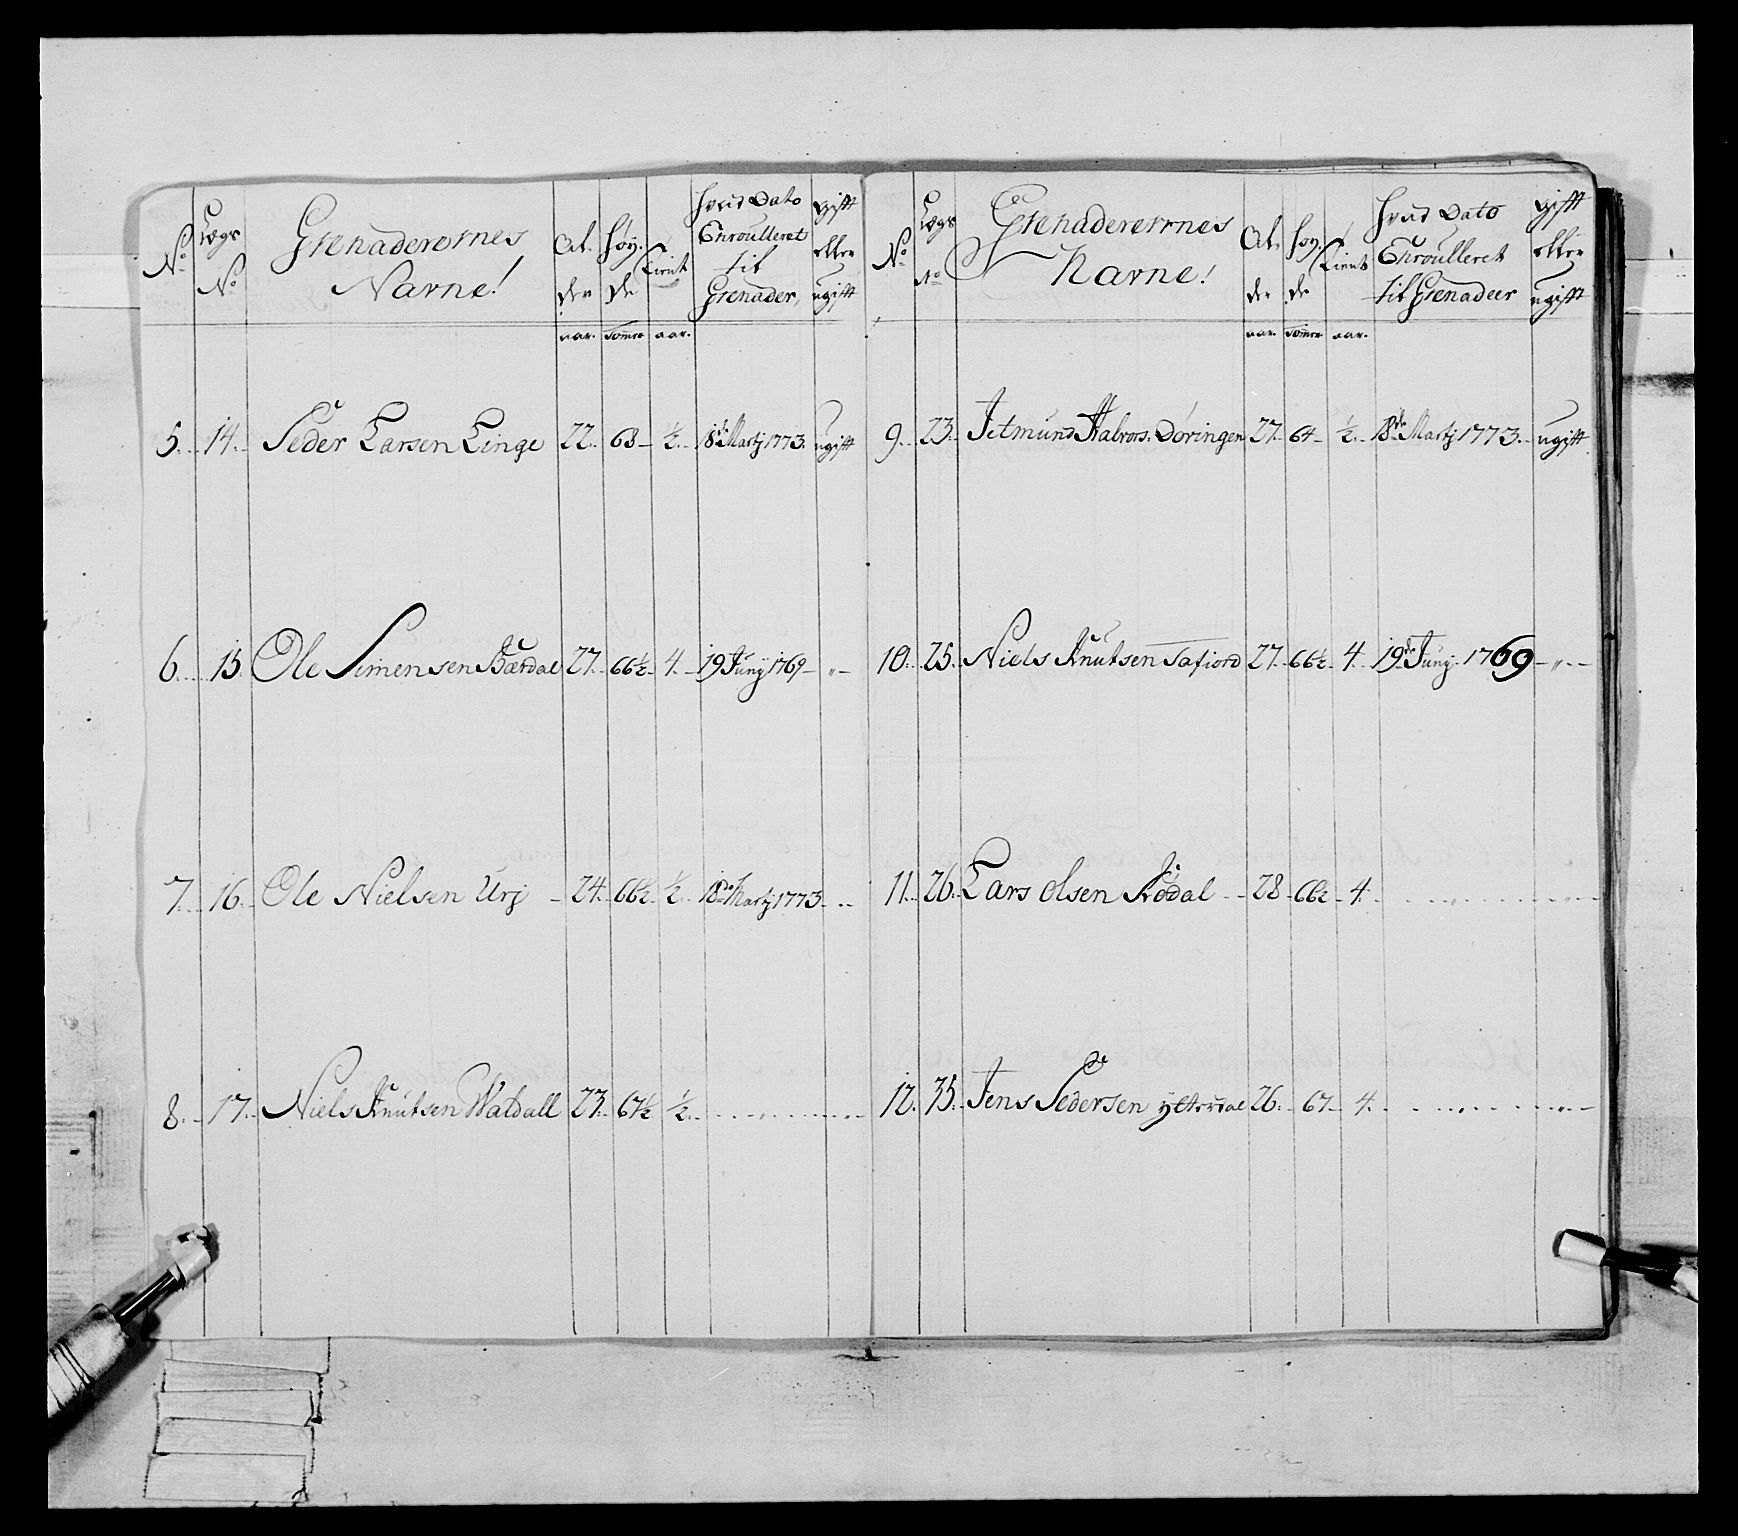 No | Lægs No | Grenaderernes Navne! | Al- der aar. | Høy- de Tommer | Tient aar. | hvad Dato Enroulleret til Grenader, | gift eller ugift
5. | 14. | Peder Larsen Linge | 22. | 63 | ½ | 18de Martj 1773. | ugift
6. | 15 | Ole Simensen Bærdal | 27. | 66½ | 4. | 19 Junj 1769 | "
7. | 16. | Ole Nielsen Urj | 24. | 66½ | ½ | 18de Martj 1773 | "
8. | 17. | Niels Knutsen Waldall | 23. | 67½ | ½ | " | "
No | Lægs No | Grenaderernes Navne! | Al- der aar. | høy- de Tommer | Tient aar. | hvad Dato Enroulleret til Grenadeer | gift eller ugift
9. | 23. | Jetmund Halvors. Døringen | 27. | 64 | ½ | 18de Martj 1773. | ugift
10. | 25. | Niels Knutsen Tafiord | 27. | 66½ | 4. | 19de Junj 1769 | "
11. | 26. | Lars Olsen Rødal | 28 | 66½ | 4. | " | "
12. | 35. | Jens Pedersen ytterdal | 26. | 67 | 4. | " | "